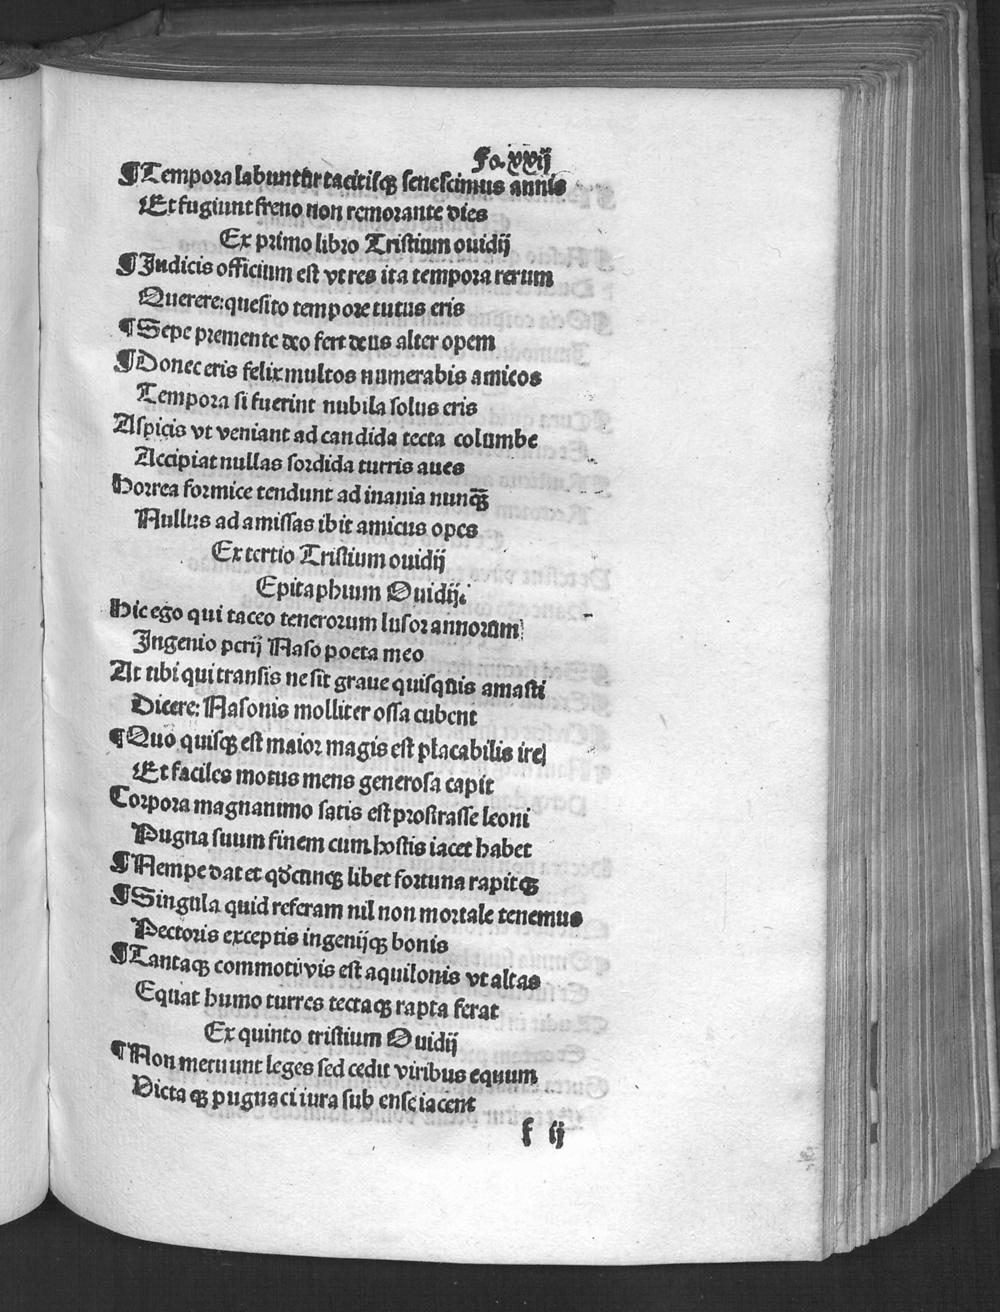 Fo. xxij
¶Tempora labuntur tacitisqꝫ senescimus annis
Et fugiunt freno non remorante dies
Ex primo libro Tristium ouidij
¶Judicis officium est vt res ita tempora rerum
Querere: quesito tempore tutus eris
¶Sepe premente deo fert deus alter opem
¶Donec eris felix multos numerabis amicos
Tempora si fuerint nubila solus eris
Aspicis vt veniant ad candida tecta columbe
Accipiat nullas sordida turris aues
Horrea formice tendunt ad inania nunqᷓꝫ
Nullus ad amissas ibit amicus opes
Ex tertio Tristium ouidij
Epitaphium Ouidij.
Hic ego qui taceo tenerorum lusor annorum
Ingenio perij Naso poeta meo
At tibi qui transis ne sit graue quisquis amasti
Dicere: Nasonis molliter ossa cubent
¶Quo quisqꝫ est maior magis est placabilis ire
Et faciles motus mens generosa capit
Corpora magnanimo satis est prostrasse leoni
Pugna suum finem cum hostis iacet habet
¶Nempe dat et qđcunqꝫ libet fortuna rapitqꝫ
¶Singula quid referam nil non mortale tenemus
Pectoris exceptis ingenijqꝫ bonis
¶Tantaqꝫ commoti vis est aquilonis vt altas
Equat humo turres tectaqꝫ rapta ferat
Ex quinto tristium Ouidij
¶Non metuunt leges sed cedit viribus equum
Victaqꝫ pugnaci iura sub ense iacent
f ij